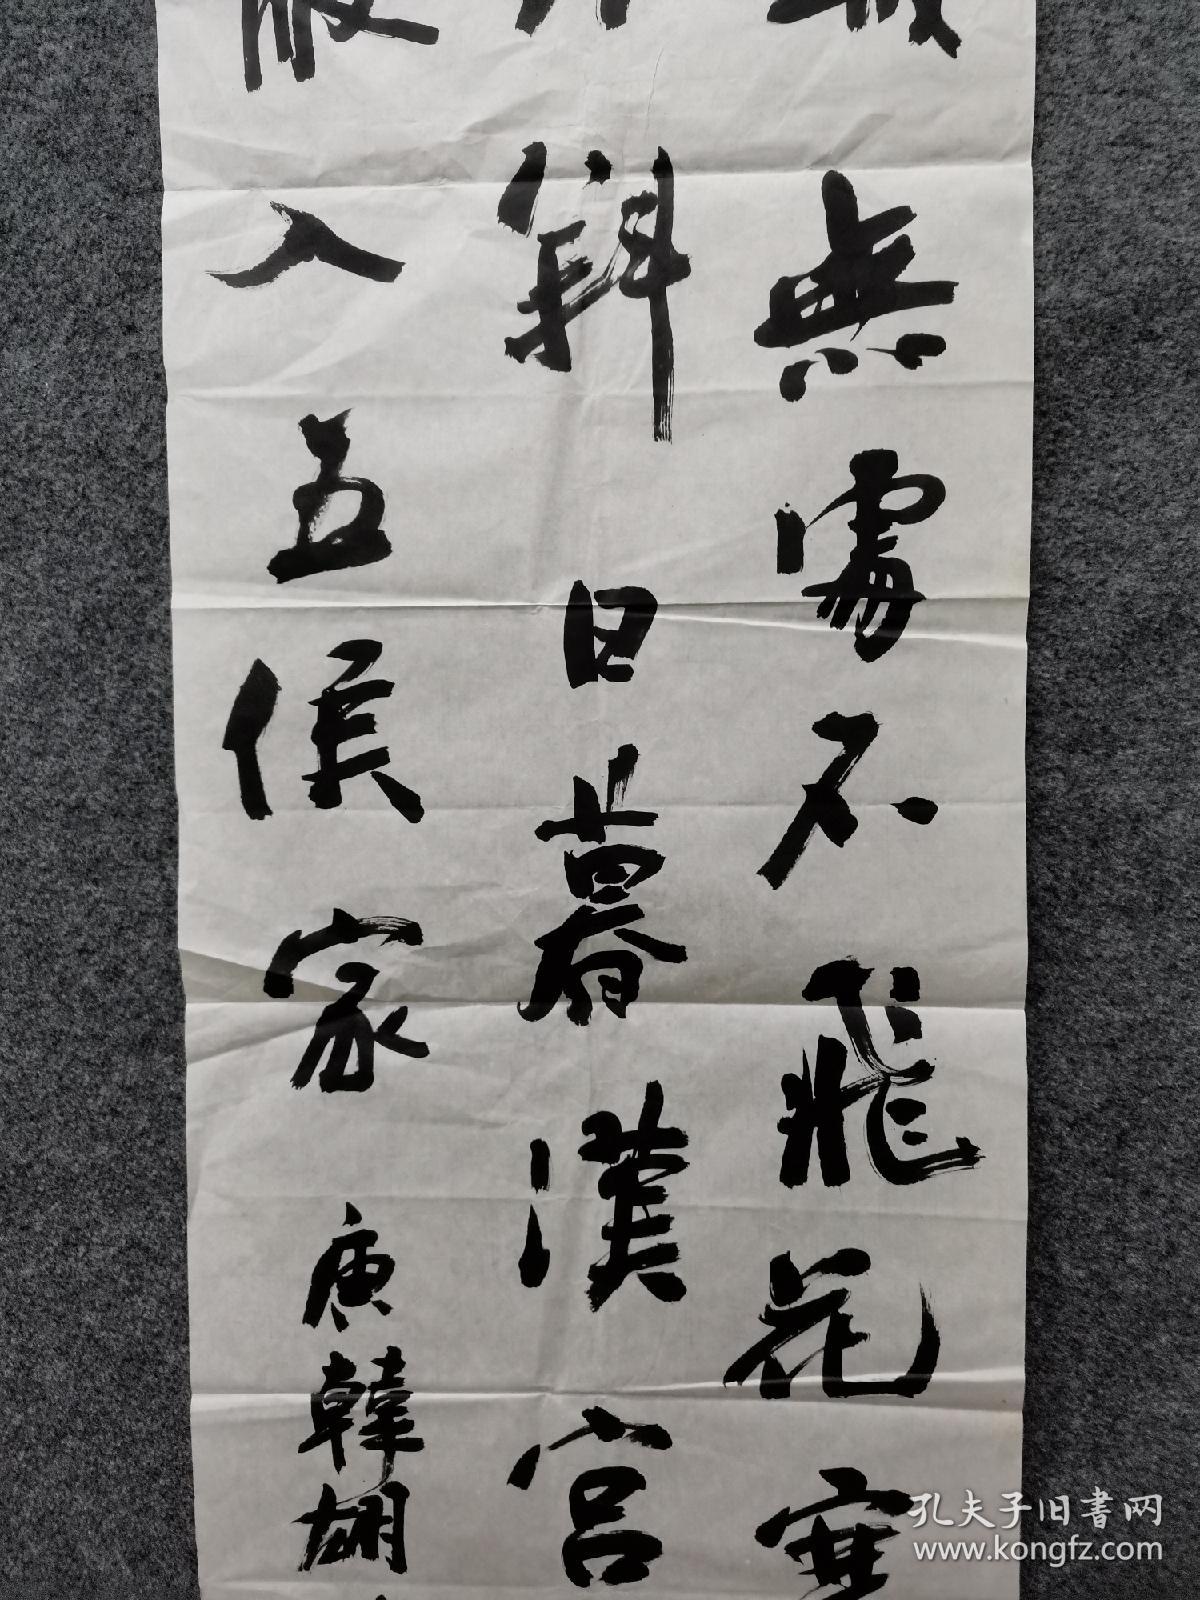 城無處不飛花寒
斜日暮漢宮
散入五侯家 唐韓翃
孔夫子旧書网
www.kongfz.com